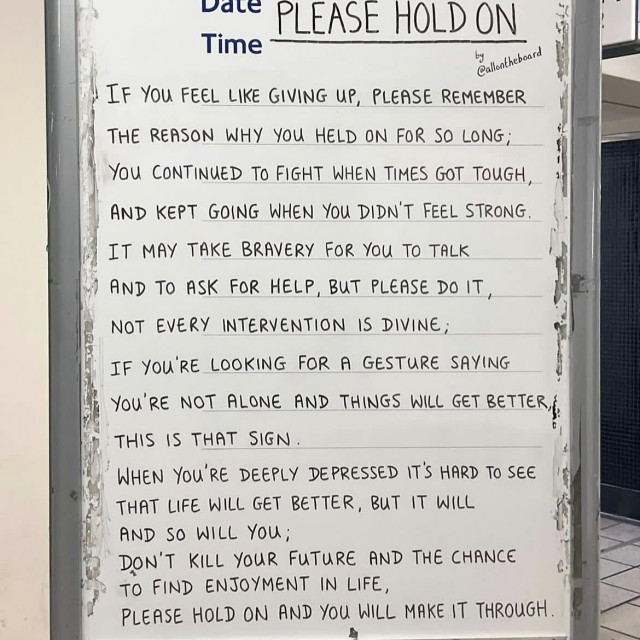 Date PLEASE HOLD ON
Time
by
@allontheboard
IF YOU FEEL LIKE GIVING UP, PLEASE REMEMBER
THE REASON WHY YOU HELD ON FOR SO LONG;
YOU CONTINUED TO FIGHT WHEN TIMES GOT TOUGH,
AND KEPT GOING WHEN YOU DIDN'T FEEL STRONG.
IT MAY TAKE BRAVERY FOR YOU TO TALK
AND TO ASK FOR HELP, BUT PLEASE DO IT,
NOT EVERY INTERVENTION IS DIVINE;
IF YOU'RE LOOKING FOR A GESTURE SAYING
YOU'RE NOT ALONE AND THINGS WILL GET BETTER,
THIS IS THAT SIGN.
WHEN YOU'RE DEEPLY DEPRESSED IT'S HARD TO SEE
THAT LIFE WILL GET BETTER, BUT IT WILL
AND SO WILL YOU;
DON'T KILL YOUR FUTURE AND THE CHANCE
TO FIND ENJOYMENT IN LIFE,
PLEASE HOLD ON AND YOU WILL MAKE IT THROUGH.